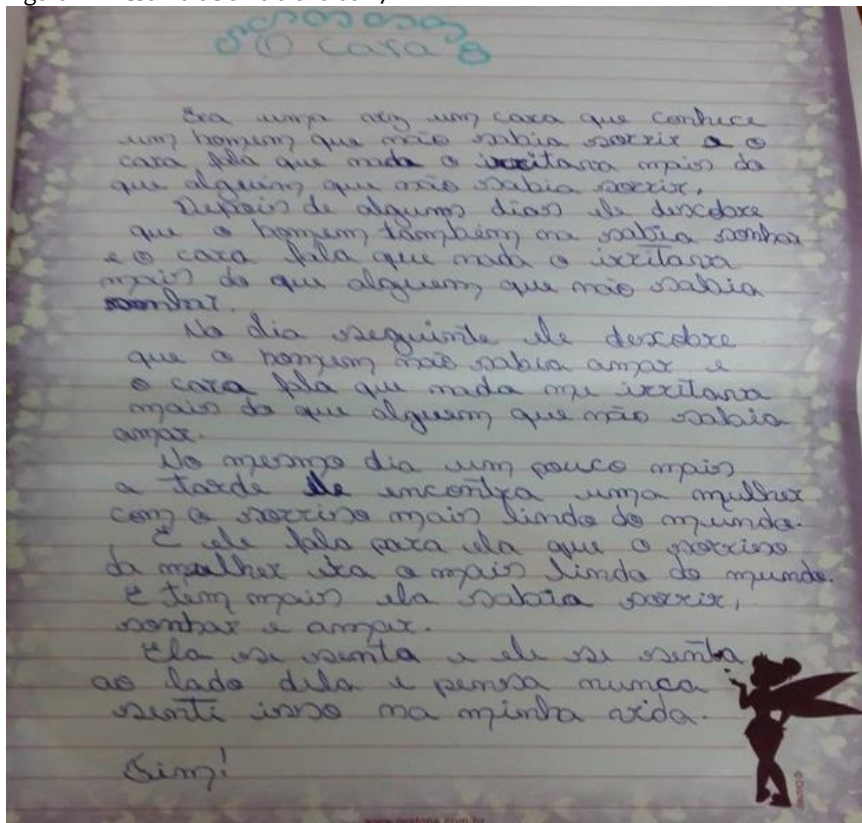 O cara
Era uma vez um cara que conhece
um homem que não sabia sorrir e o
cara fala que nada o irritava mais do
que alguém que não sabia sorrir.
Depois de alguns dias ele descobre
que o homem também na sabia sonhar
e o cara fala que nada o irritava
mais do que alguem que não sabia
sonhar.
No dia seguinte ele descobre
que o homem não sabia amar e
o cara fala que nada me irritava
mais do que alguem que não sabia
amar.
No mesmo dia um pouco mais
a tarde ele encontra uma mulher
com o sorriso mais lindo do mundo.
E ele fala para ela que o sorriso
da mulher era o mais lindo do mundo.
E tem mais ela sabia sorrir,
sonhar e amar.
Ela se senta e ele se senta
ao lado dela e pensa nunca
senti isso na minha vida.
Fim!
© Disney